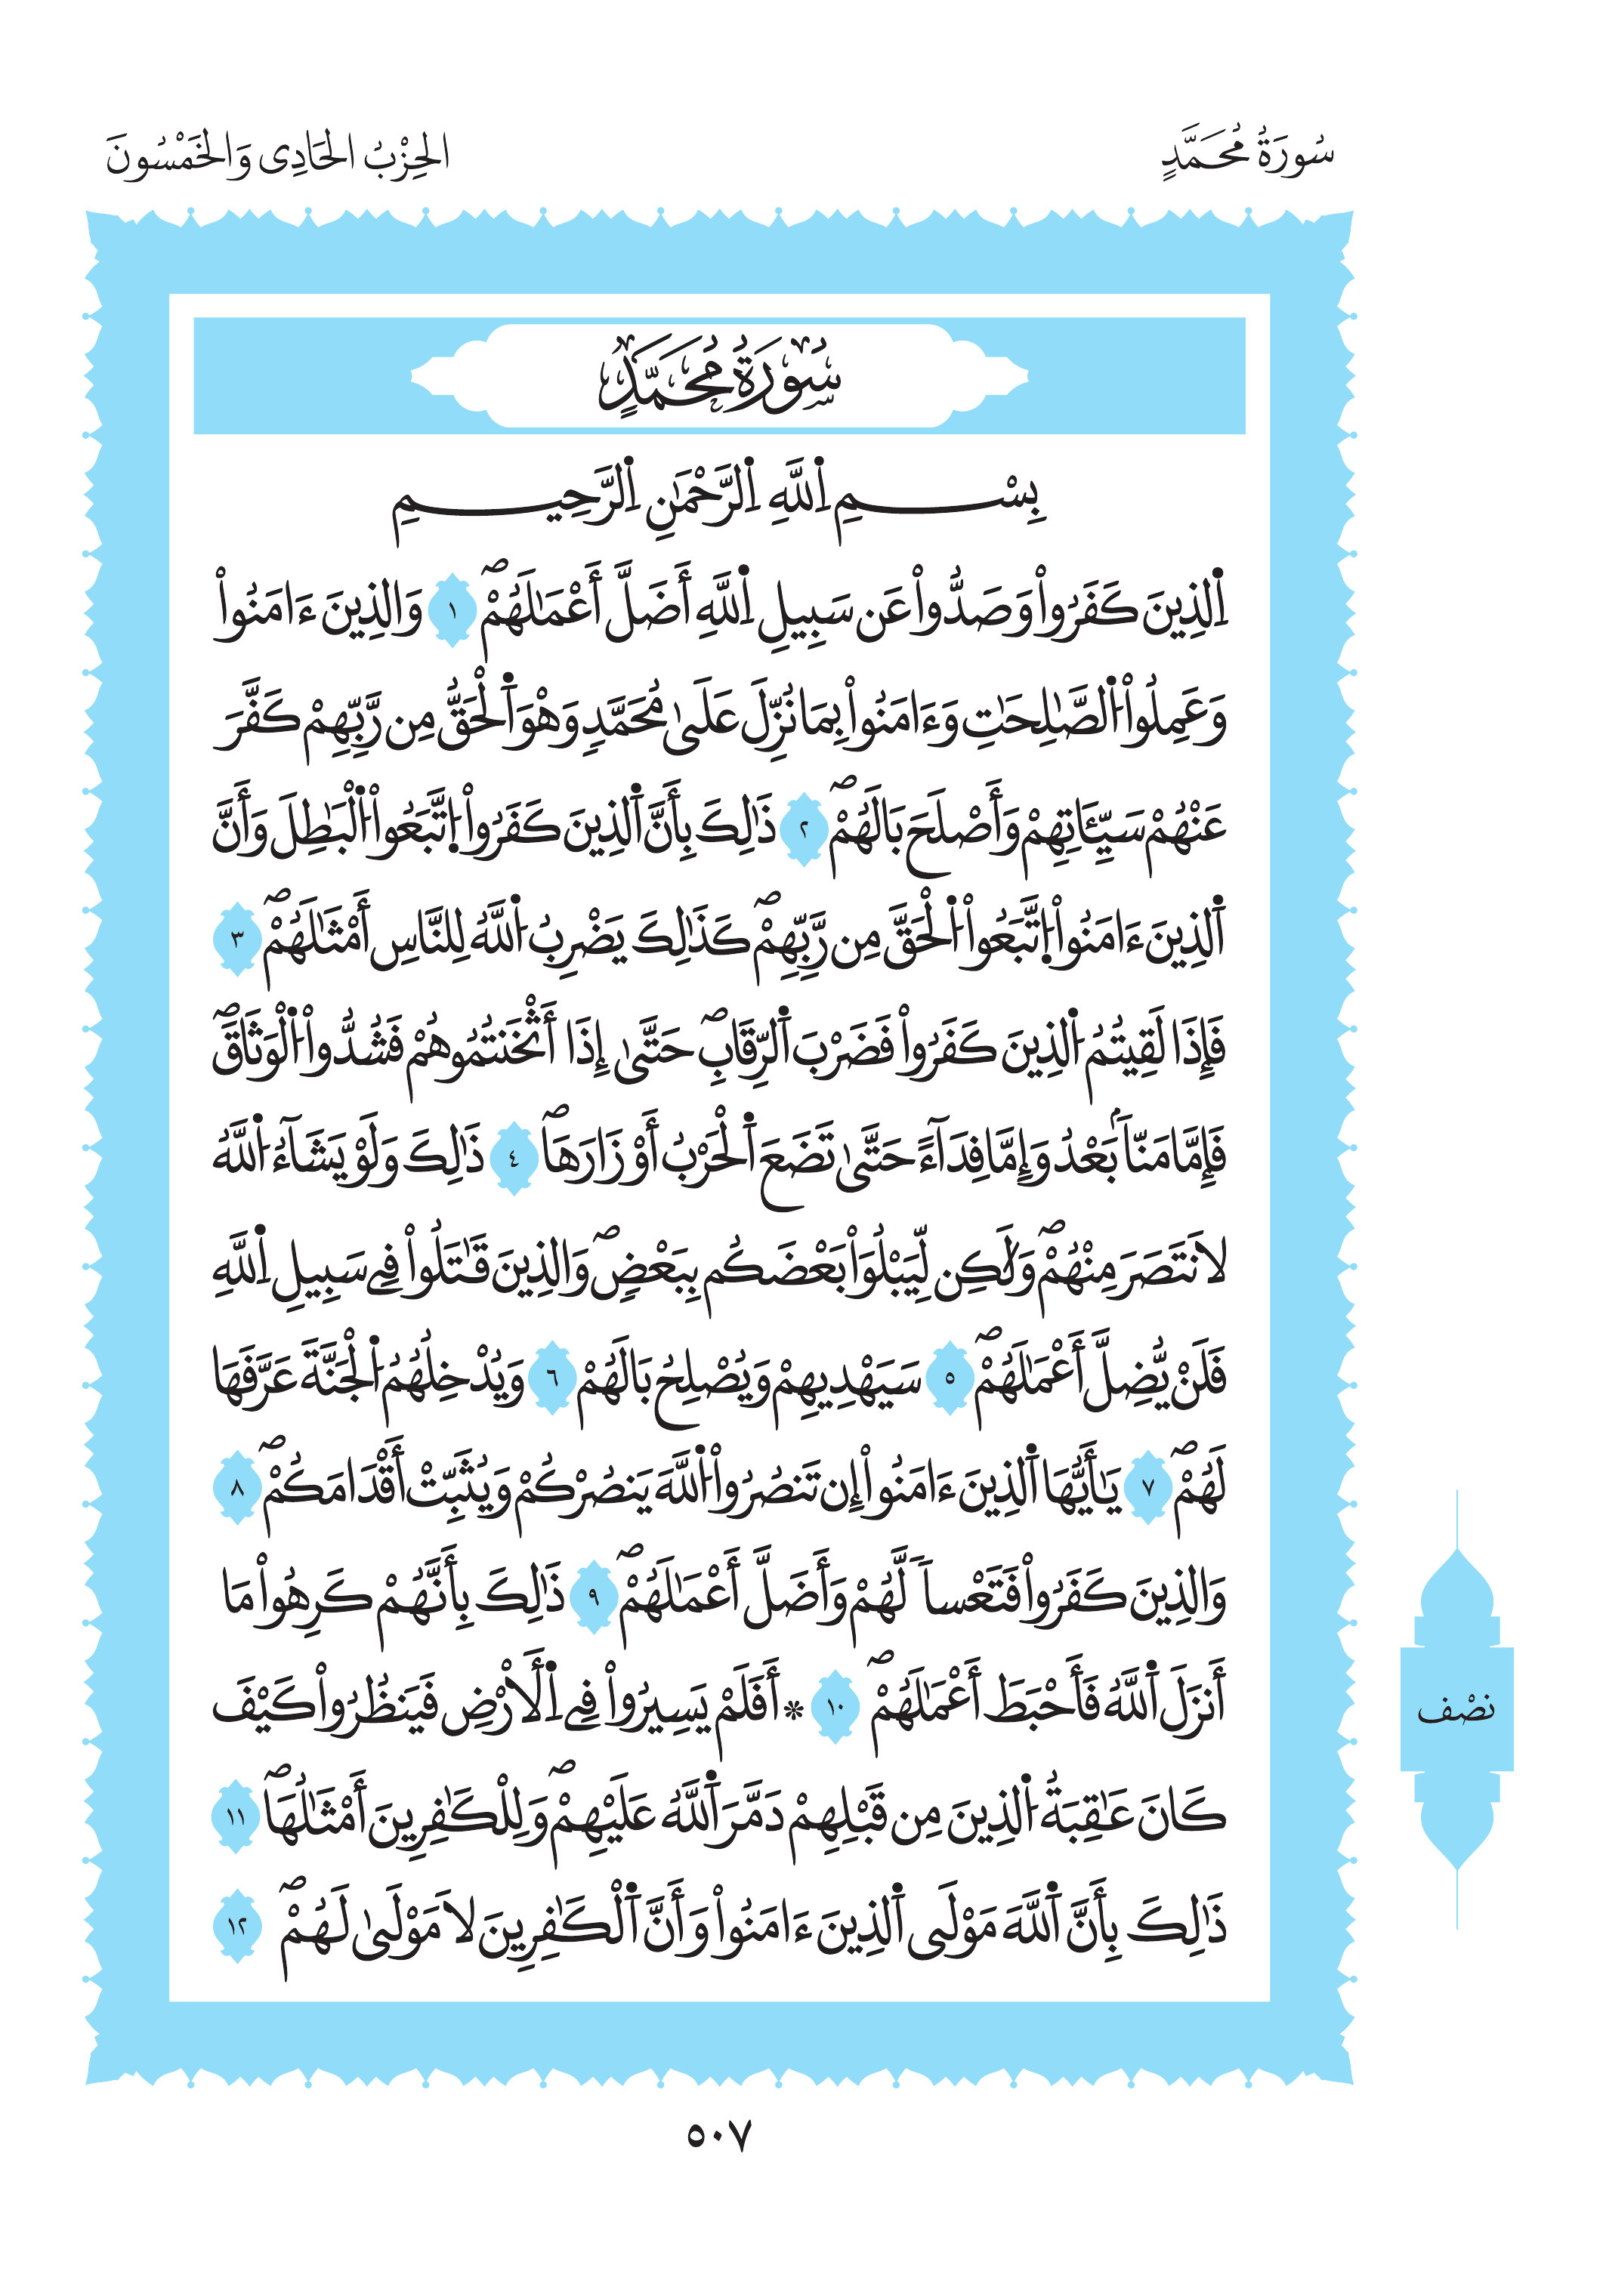 سُورَةُ مُحَمَّدٍ
الحِزْبُ الحَادِي وَالخَمْسُونَ
سُورَةُ مُحَمَّدٍ
بِسْمِ اِ۬للَّهِ اِ۬لرَّحْمَٰنِ اِ۬لرَّحِيمِ
اِ۬لذِينَ كَفَرُواْ وَصَدُّواْ عَن سَبِيلِ اِ۬للَّهِ أَضَلَّ أَعْمَٰلَهُمْۖ ١ وَالذِينَ ءَامَنُواْ
وَعَمِلُواْ اُ۬لصَّٰلِحَٰتِ وَءَامَنُواْ بِمَا نُزِّلَ عَلَىٰ مُحَمَّدٖ وَهْوَ اَ۬لْحَقُّ مِن رَّبِّهِمْ كَفَّرَ
عَنْهُمْ سَيِّـَٔاتِهِمْ وَأَصْلَحَ بَالَهُمْۖ ٢ ذَٰلِكَ بِأَنَّ اَ۬لذِينَ كَفَرُواْ اُ۪تَّبَعُواْ اُ۬لْبَٰطِلَ وَأَنَّ
اَ۬لذِينَ ءَامَنُواْ اُ۪تَّبَعُواْ اُ۬لْحَقَّ مِن رَّبِّهِمْۖ كَذَٰلِكَ يَضْرِبُ اُ۬للَّهُ لِلنَّاسِ أَمْثَٰلَهُمْۖ ٣
فَإِذَا لَقِيتُمُ اُ۬لذِينَ كَفَرُواْ فَضَرْبَ اَ۬لرِّقَابِۖ حَتَّىٰ إِذَا أَثْخَنتُمُوهُمْ فَشُدُّواْ اُ۬لْوَثَاقَۖ
فَإِمَّا مَنّاَۢ بَعْدُ وَإِمَّا فِدَآءً حَتَّىٰ تَضَعَ اَ۬لْحَرْبُ أَوْزَارَهَاۖ ٤ ذَٰلِكَ وَلَوْ يَشَآءُ اُ۬للَّهُ
لَانتَصَرَ مِنْهُمْۖ وَلَٰكِن لِّيَبْلُوَاْ بَعْضَكُم بِبَعْضٖۖ وَالذِينَ قَٰتَلُواْ فِے سَبِيلِ اِ۬للَّهِ
فَلَنْ يُّضِلَّ أَعْمَٰلَهُمْۖ ٥ سَيَهْدِيهِمْ وَيُصْلِحُ بَالَهُمْ ٦ وَيُدْخِلُهُمُ اُ۬لْجَنَّةَ عَرَّفَهَا
لَهُمْۖ ٧ يَٰأَيُّهَا اَ۬لذِينَ ءَامَنُواْ إِن تَنصُرُواْ اُ۬للَّهَ يَنصُرْكُمْ وَيُثَبِّتْ أَقْدَامَكُمْۖ ٨
وَالذِينَ كَفَرُواْ فَتَعْساٗ لَّهُمْ وَأَضَلَّ أَعْمَٰلَهُمْۖ ٩ ذَٰلِكَ بِأَنَّهُمْ كَرِهُواْ مَا
أَنزَلَ اَ۬للَّهُ فَأَحْبَطَ أَعْمَٰلَهُمْۖ ١٠ * أَفَلَمْ يَسِيرُواْ فِے اِ۬لْأَرْضِ فَيَنظُرُواْ كَيْفَ
كَانَ عَٰقِبَةُ اُ۬لذِينَ مِن قَبْلِهِمْ دَمَّرَ اَ۬للَّهُ عَلَيْهِمْۖ وَلِلْكَٰفِرِينَ أَمْثَٰلُهَاۖ ١١
ذَٰلِكَ بِأَنَّ اَ۬للَّهَ مَوْلَى اَ۬لذِينَ ءَامَنُواْ وَأَنَّ اَ۬لْكَٰفِرِينَ لَا مَوْلَىٰ لَهُمْۖ ١٢
نصْف
٥٠٧